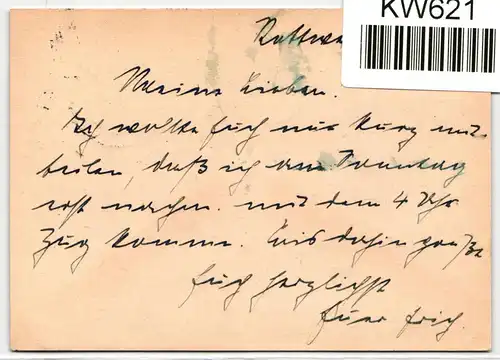 KW621
Rottwe
Meine Lieben.
Ich wollte Euch nur kurz mit-
teilen, daß ich am Sonntag
erst nachm. mit dem 4 Uhr
Zug komme. Bis dahin grüßt
Euch herzlichst
Euer Erich.